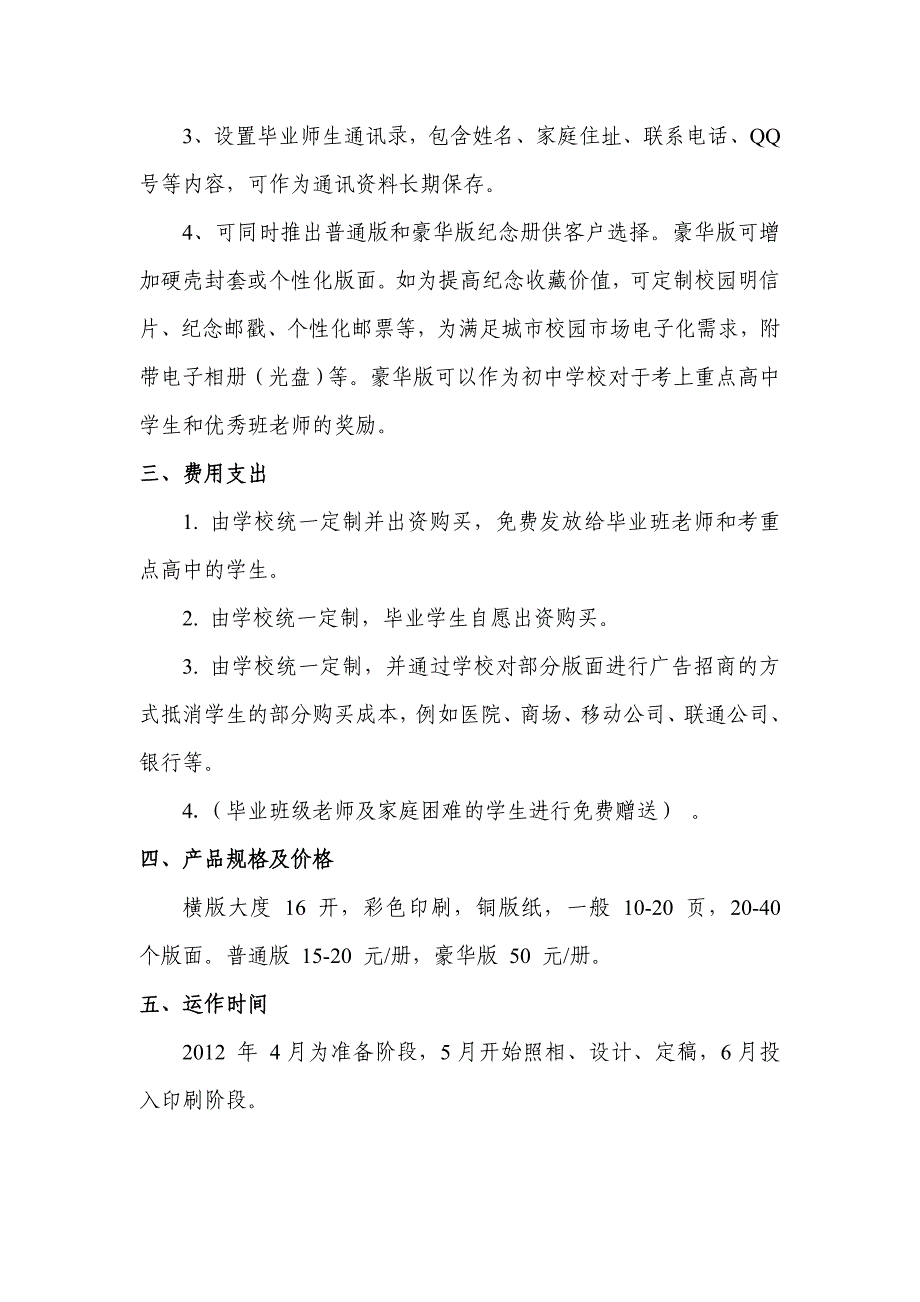 3、设置毕业师生通讯录，包含姓名、家庭住址、联系电话、QQ
号等内容，可作为通讯资料长期保存。
4、可同时推出普通版和豪华版纪念册供客户选择。豪华版可增
加硬壳封套或个性化版面。如为提高纪念收藏价值，可定制校园明信
片、纪念邮戳、个性化邮票等，为满足城市校园市场电子化需求，附
带电子相册（光盘）等。豪华版可以作为初中学校对于考上重点高中
学生和优秀班老师的奖励。
三、费用支出
1. 由学校统一定制并出资购买，免费发放给毕业班老师和考重
点高中的学生。
2. 由学校统一定制，毕业学生自愿出资购买。
3. 由学校统一定制，并通过学校对部分版面进行广告招商的方
式抵消学生的部分购买成本，例如医院、商场、移动公司、联通公司、
银行等。
4.（毕业班级老师及家庭困难的学生进行免费赠送） 。
四、产品规格及价格
横版大度 16 开，彩色印刷，铜版纸，一般 10-20 页，20-40
个版面。普通版 15-20 元/册，豪华版 50 元/册。
五、运作时间
2012 年 4月为准备阶段，5月开始照相、设计、定稿，6月投
入印刷阶段。